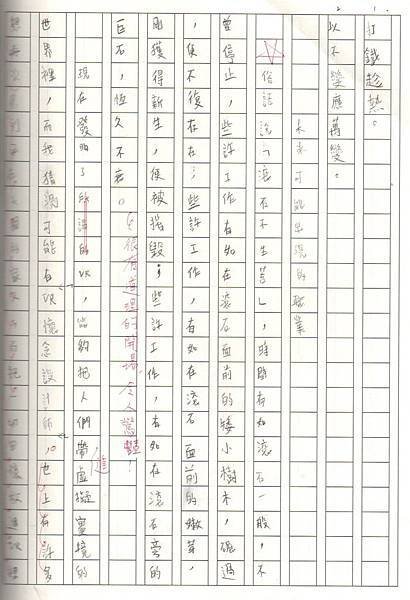 1. 打鐵趁熱。
2. 以不變應萬變。
未來可能出現的職業
俗話說「滾石不生苔」，時間有如滾石一般，不
曾停止，些許工作有如在滾石面前的矮小樹木，碾過
，便不復在；些許工作有如在滾石面前的嫩芽，
剛獲得新生，便被摧毀；些許工作，有如在滾石旁的
巨石，恆久不衰。
很有道理的開場，令人驚豔！
現在發明了所謂的VR，能夠把人們帶進虛擬實境的
世界裡，而我猜測可能有VR概念設計師，也上有許多